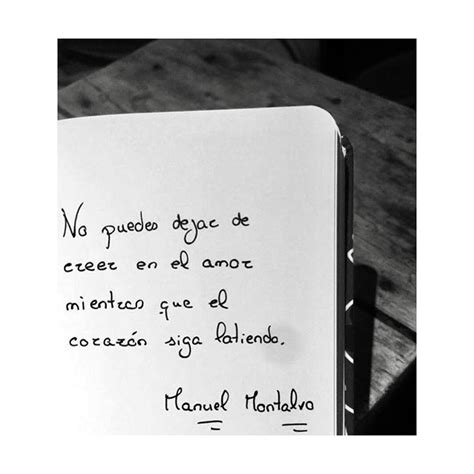 No puedes dejar de
creer en el amor
mientras que el
corazón siga latiendo.
Manuel Montalvo